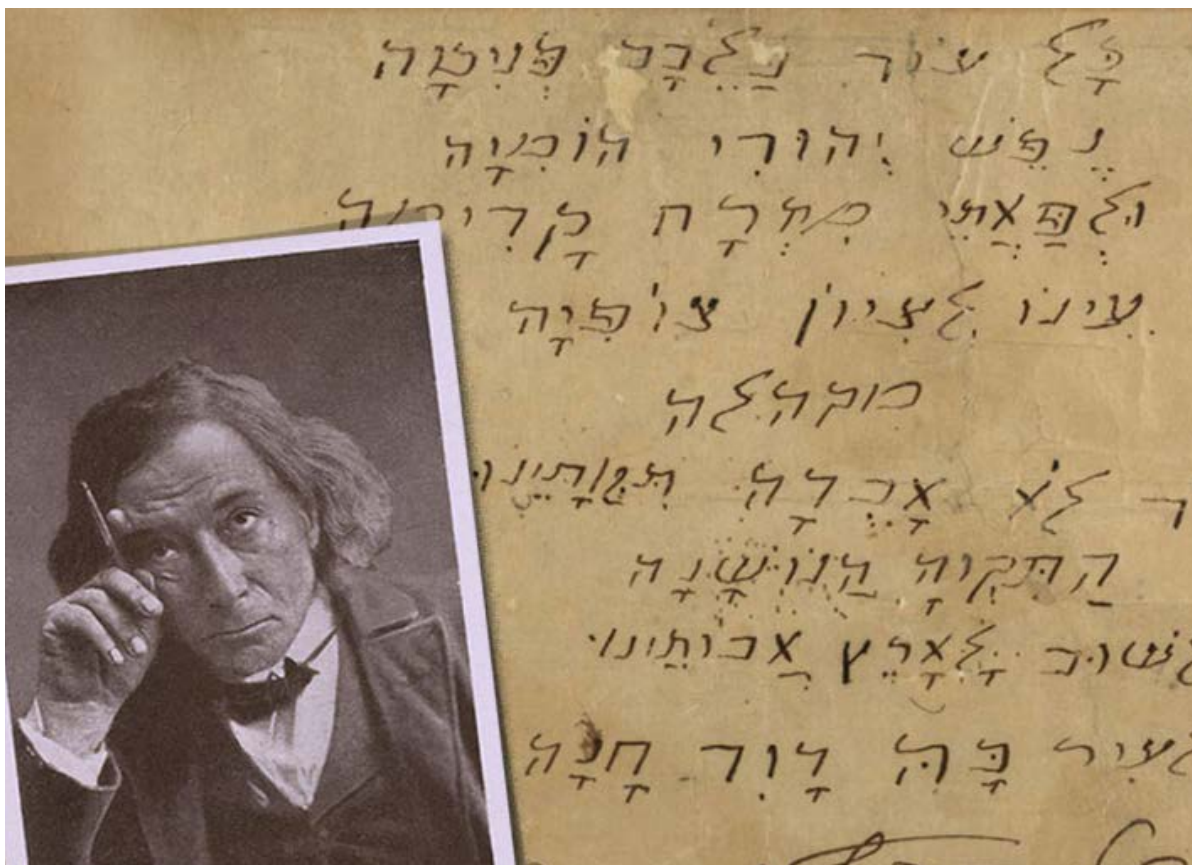 כָּל עוֹד בַּלֵּבָב פְּנִימָה
נֶפֶשׁ יְהוּדִי הוֹמִיָה
וּלְפַאֲתֵי מִזְרָח קָדִימָה
עֵינוֹ לְצִיוֹן צוֹפִיָה
מקהלה
ד לֹא אָבְדָה תִּקְוָתֵינוּ
הַתִּקְוָה הַנּוֹשָׁנָה
לשׁוּב לְאָרֶץ אֲבוֹתֵינוּ
לעִיר בָּהּ דָוִד חָנָה